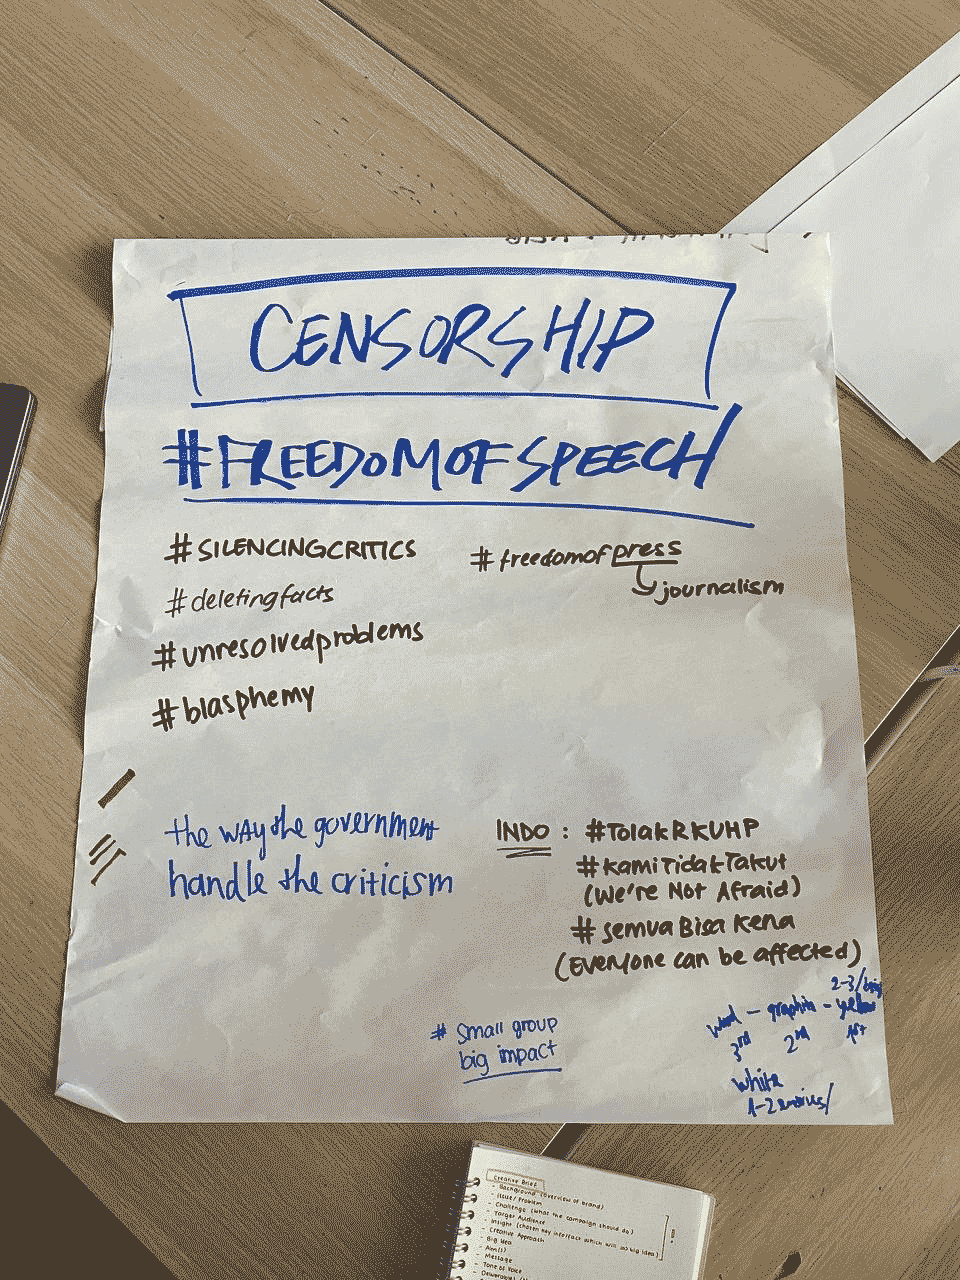 CENSORSHIP
#FREEDOMOFSPEECH
#SILENCINGCRITICS
#deletingfacts
#unresolvedproblems
#blasphemy
#freedomofpress
journalism
the way the government
handle the criticism
INDO : #TolakRKUHP
#KamiTidakTakut
(We're Not Afraid)
#SemuaBisaKena
(Everyone can be affected)
# Small group
big impact
2-3/
- graphin - yellow
3rd 2nd 1st
white
1-2
Creative Brief
- Background (overview of brand)
- Issue/Problem
- Challenge (what the campaign should do)
- Target Audience
- Insight (chosen key interface which will as big idea)
- Creative Approach
- Big Idea
- Aim(s)
- Message
- Tone of Voice